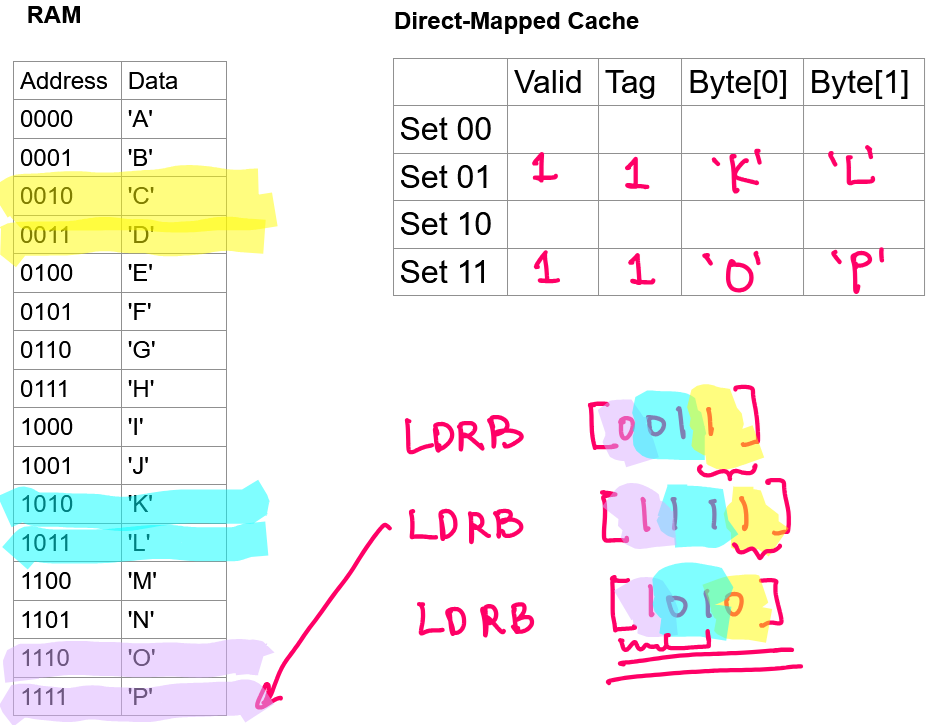 RAM
Direct-Mapped Cache
Address Data
0000 'A'
0001 'B'
0010 'C'
0011 'D'
0100 'E'
0101 'F'
0110 'G'
0111 'H'
1000 'I'
1001 'J'
1010 'K'
1011 'L'
1100 'M'
1101 'N'
1110 'O'
1111 'P'
Valid Tag Byte[0] Byte[1]
Set 00
Set 01 1 1 'K' 'L'
Set 10
Set 11 1 1 'O' 'P'
LDRB [0011]
LDRB [1111]
LDRB [1010]